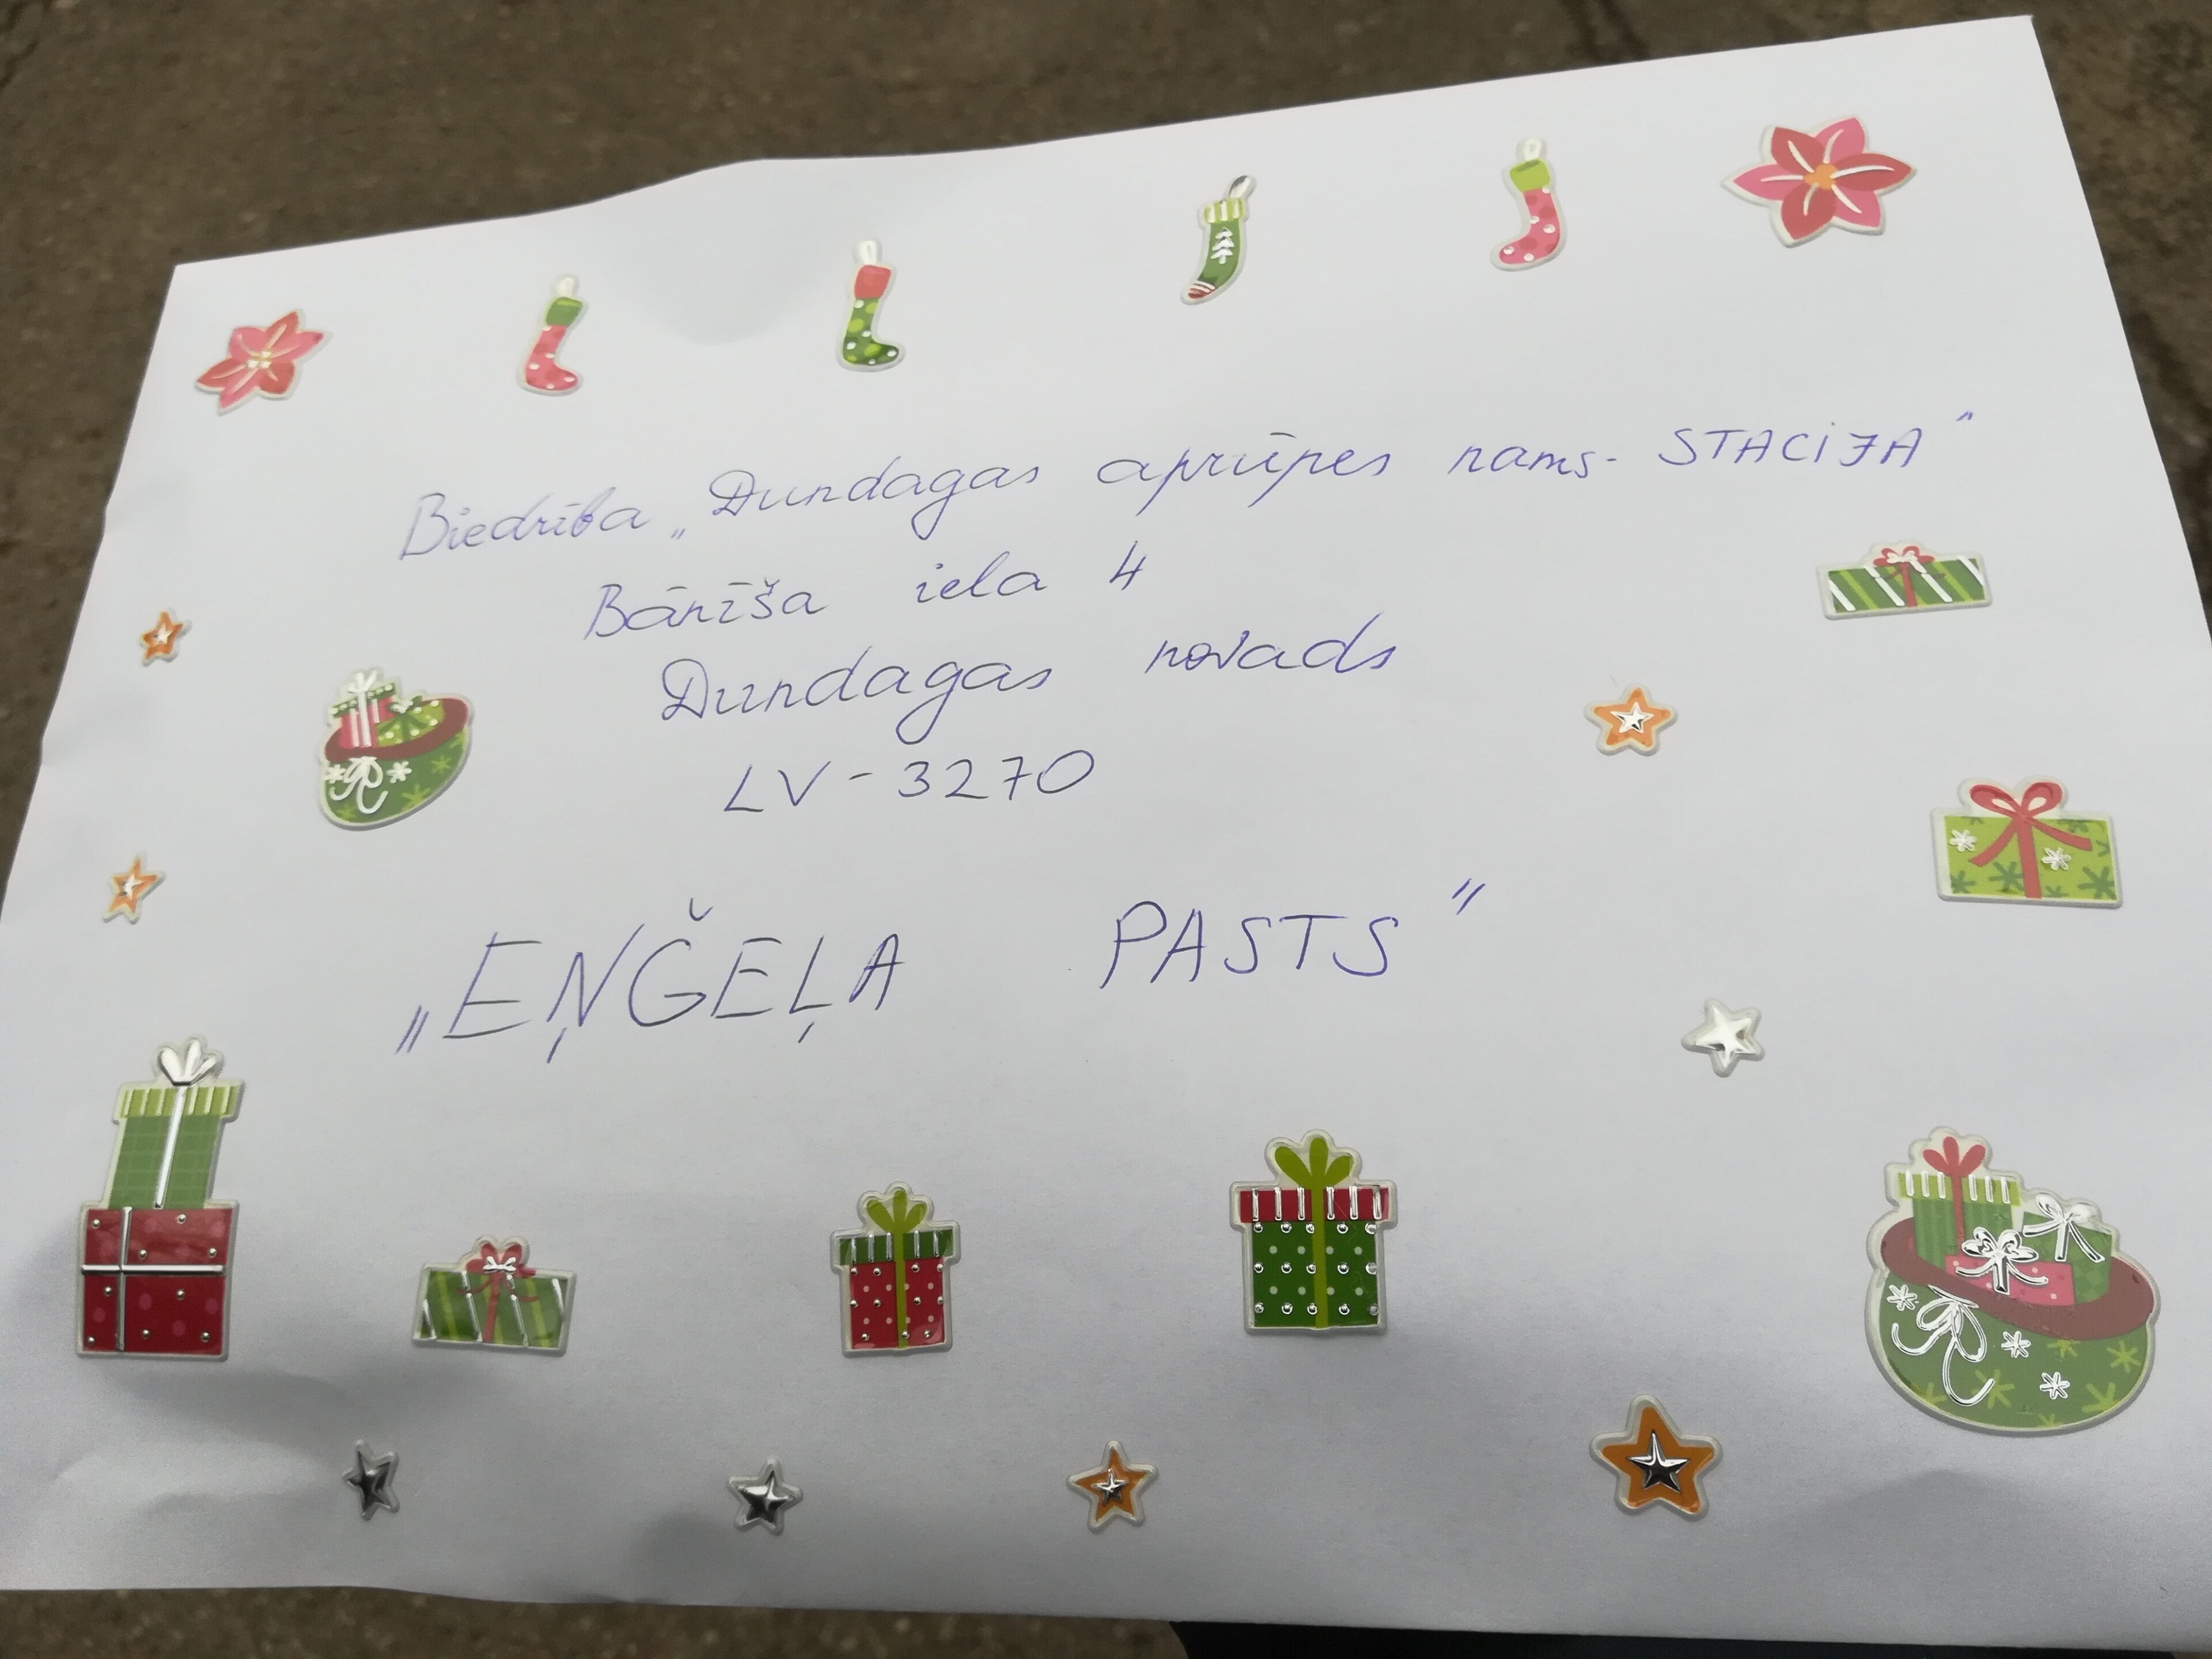 Biedrība „Dundagas aprūpes nams - STACIJA"
Bānīša iela 4
Dundagas novads
LV - 3270
„EŅĢEĻA PASTS"